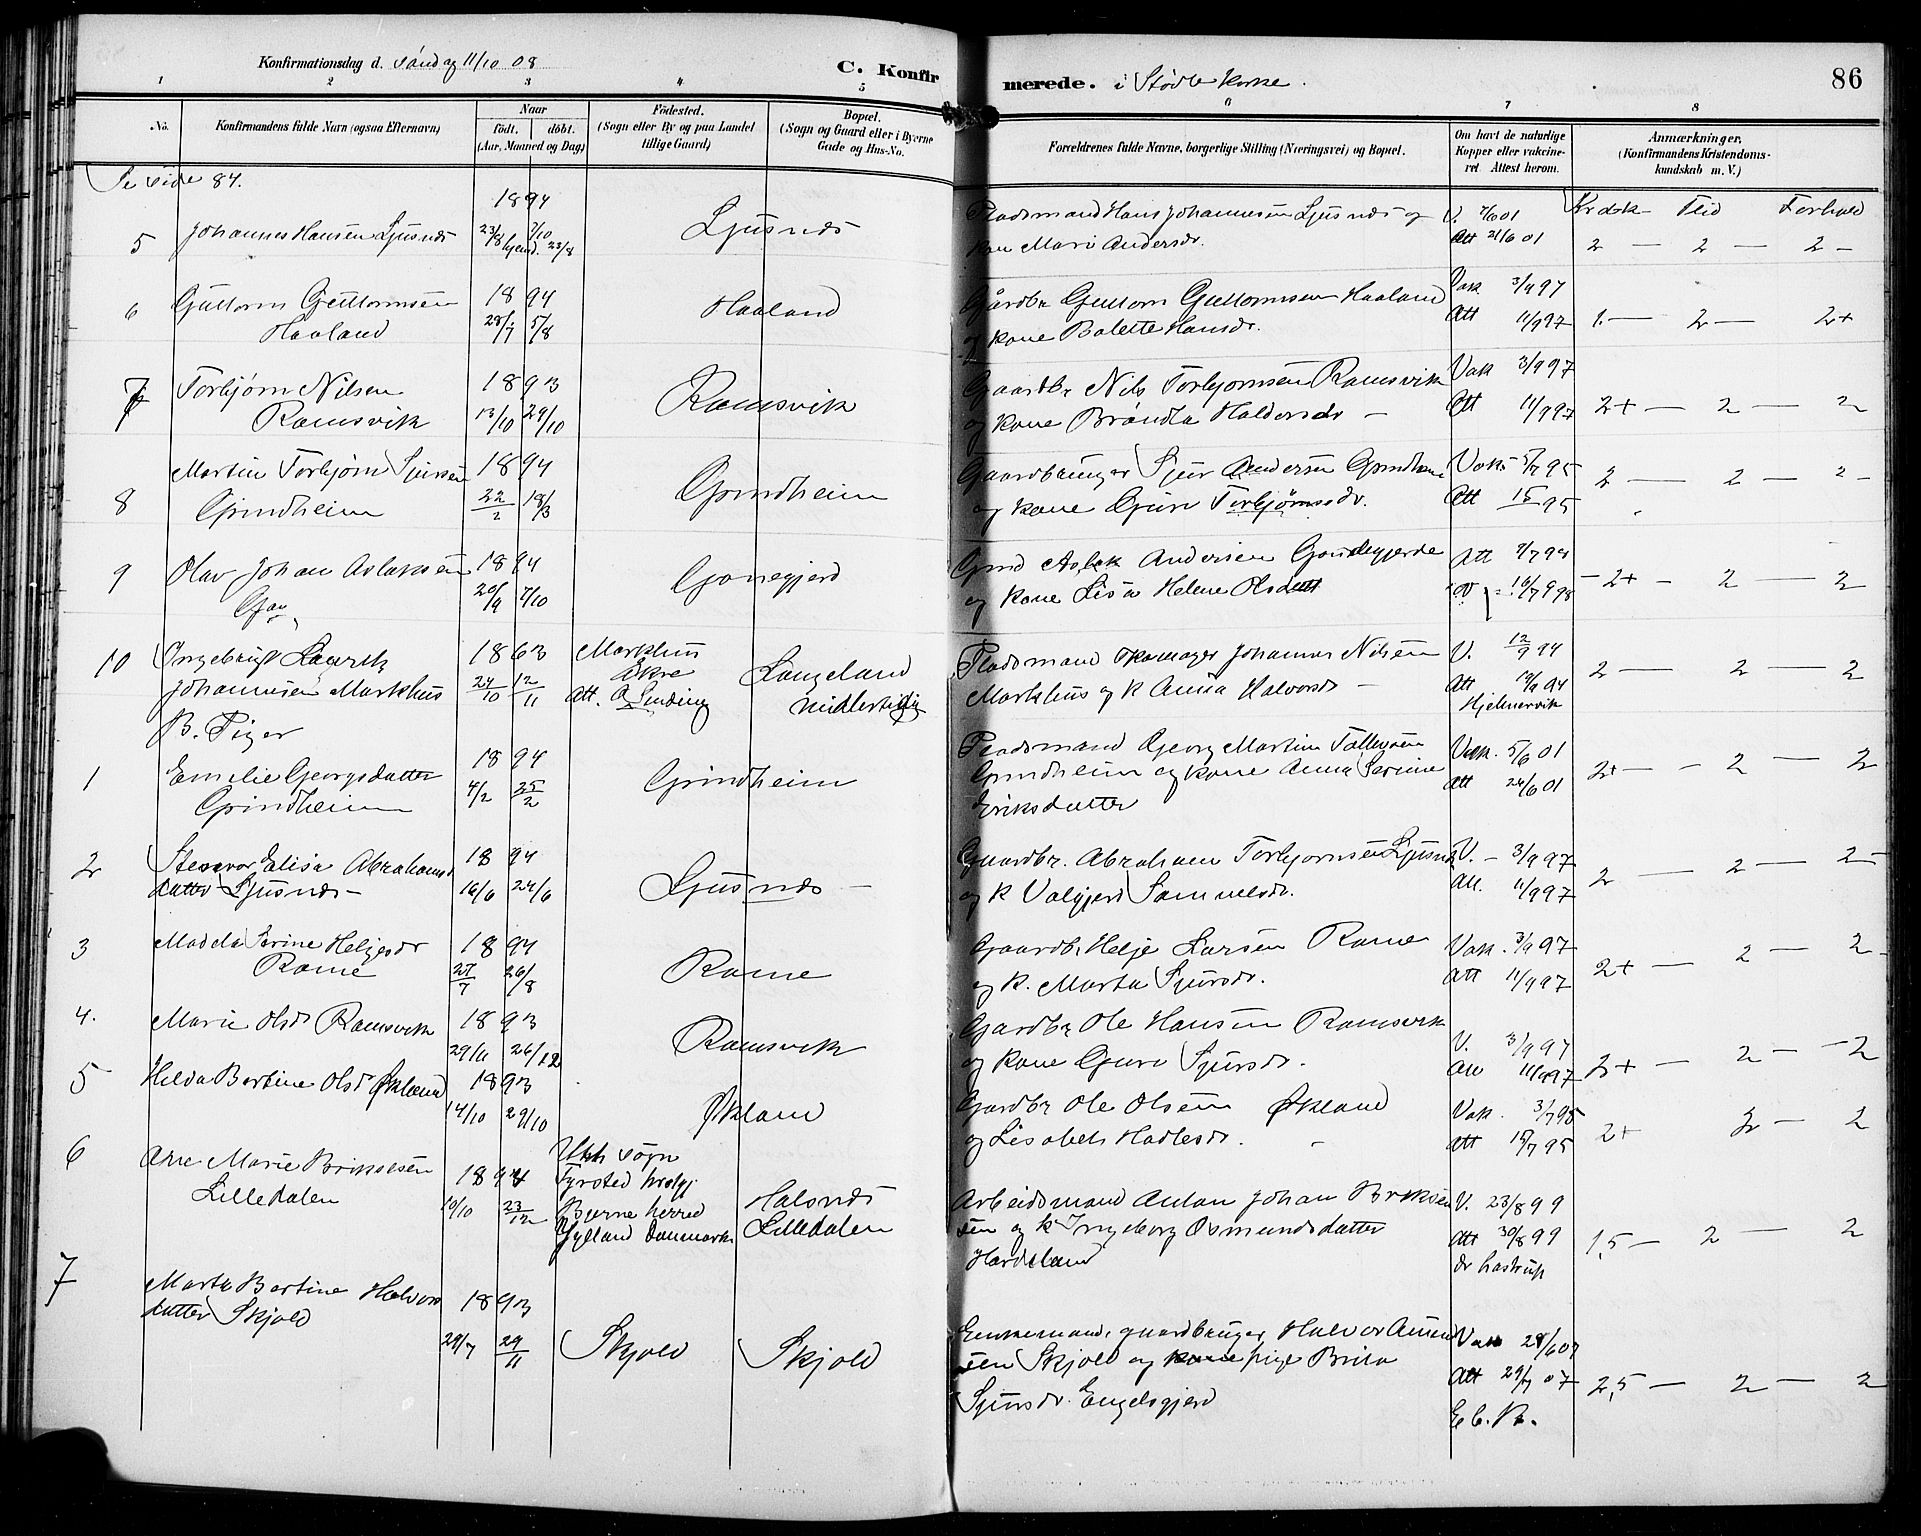 Konfirmationsdag d. søndag 11/10 08
C. Konfirmerede. i Stødle Kirke.
86
1 2 3 4 5 6 7 8
No.
Konfirmandens fulde Navn (ogsaa Efternavn)
Naar
født. døbt.
(Aar, Maaned og Dag)
Fødested.
(Sogn eller By og paa Landet
tillige Gaard)
Bopæl.
(Sogn og Gaard eller i Byerne
Gade og Hus-No.
Forældrenes fulde Navne, borgerlige Stilling (Næringsvei) og Bopæl.
Om havt de naturlige
Kopper eller vakcine-
ret. Attest herom.
Anmærkninger,
(Konfirmandens Kristendoms-
kundskab m. V.)
Se side 84.
Krdsk Flid Forhold
5 Johannes Hansen Ljusnes
1894
23/8 7/10
hjemd. 23/8
Ljusnes
Pladsmand Hans Johannesen Ljusnes og
kone Mari Andersdr.
Att 21/6 01
2 — 2 — 2 —
6 Guttorm Guttormsen
Haaland
1894
28/7 5/8
Haaland
Gårdbr Guttorm Guttormsen Haaland
og kone Bolette Hansdr.
Vak. 3/9 97
Att 11/9 97
1. — 2 — 2+
7 Torbjørn Nilsen
Ramsvik
1893
13/10 29/10
Ramsvik
Gaardbr Nils Torbjørnsen Ramsvik
og kone Brønla Haldorsdr —
Vak 3/9 97
Att 11/9 97
2+ — 2 — 2
8 Martin Torbjørn Sjursen
Grindheim
1894
22/2 18/3
Grindheim
Gaardbruger Sjur Andersen Grindheim
og kone Guri Torbjørnsdr.
Vak 5/7 95
Att 15 95
2 — 2 — 2 —
9 Olav Johan Aslaksen
1894
20/9 7/10
Gjerde
og kone Lisa Helene Olsdatt
Att 9/7 98
2+ — 2 — 2
10 Ingebrigt Laurik
Johannesen Markhus
1863
24/10 12/11
Markhus
Åkre
Att. O Sinding
Langeland
midlertidig
Pladsmand skomager Johannes Nilsen
Markhus og k Anna Halvorsdr —
V. 12/9 94
Att 19/9 94
Hjelmervik
2 — 2 — 2
B. Piger
1 Emelie Georgsdatter
Grindheim
1894
4/2 25/2
Grindheim
Pladsmand Georg Martin Tollevsen
Grindheim og kone Anna Serine
Eriksdatter
Vak. 5/6 01
Att 24/6 01
2+ — 2 — 2
2 Stensvor Elisa Abrahams
datter Ljusnes —
1894
16/6 24/6
Ljusnes —
Gaardbr. Abraham Torbjørnsen Ljusnes
og k Valgjerd Samuelsdr.
V. — 3/9 97
Att. 11/9 97
2 — 2 — 2 —
3 Madela Serine Heljesdr
Rame
1894
25/7 26/8
Rame
Gaardbr Helje Larsen Rame
og k. Marta Sjursdr.
Vak. 3/9 97
Att 11/9 97
2+ — 2 — 2 —
4. Marie Olsdr Ramsvik
1893
29/11 26/12
Ramsvik
Gardbr Ole Hansen Ramsvik
og kone Guri Sjursdr.
V. 3/9 97
Att 11/9 97
2+ — 2 — 2
5 Helda Bertine Olsdr Økland
1893
14/10 29/10
Økland
Gardbr Ole Olsen Økland
og Lisabeth Hadlesdr. —
Vak. 3/7 95
Att 15/7 95
2+ 2 — 2
6 Ane Marie Briksesen
Lilledalen
1894
10/10 23/12
Uth sogn
Tyrsted
Bjerre herred
Jylland Danmark
Halsnes
Lilledalen
Arbeidsmand Anton Johan Briksen
sen og k Ingeborg Osmundsdatter
Hardeland
V. 23/8 99
Att 30/8 99
dr hastrup
1,5 — 2 — 2
7 Marta Bertine Halvors
datter Skjold
1893
29/7 29/11
Skjold
Skjold
Enkemand, gaardbruger Halvor Amund
sen Skjold og kone pige Brita
Sjursdr. Engelsgjerd
Vak 28/6 07
Att 29/7 07
2,5 — 2 — 2